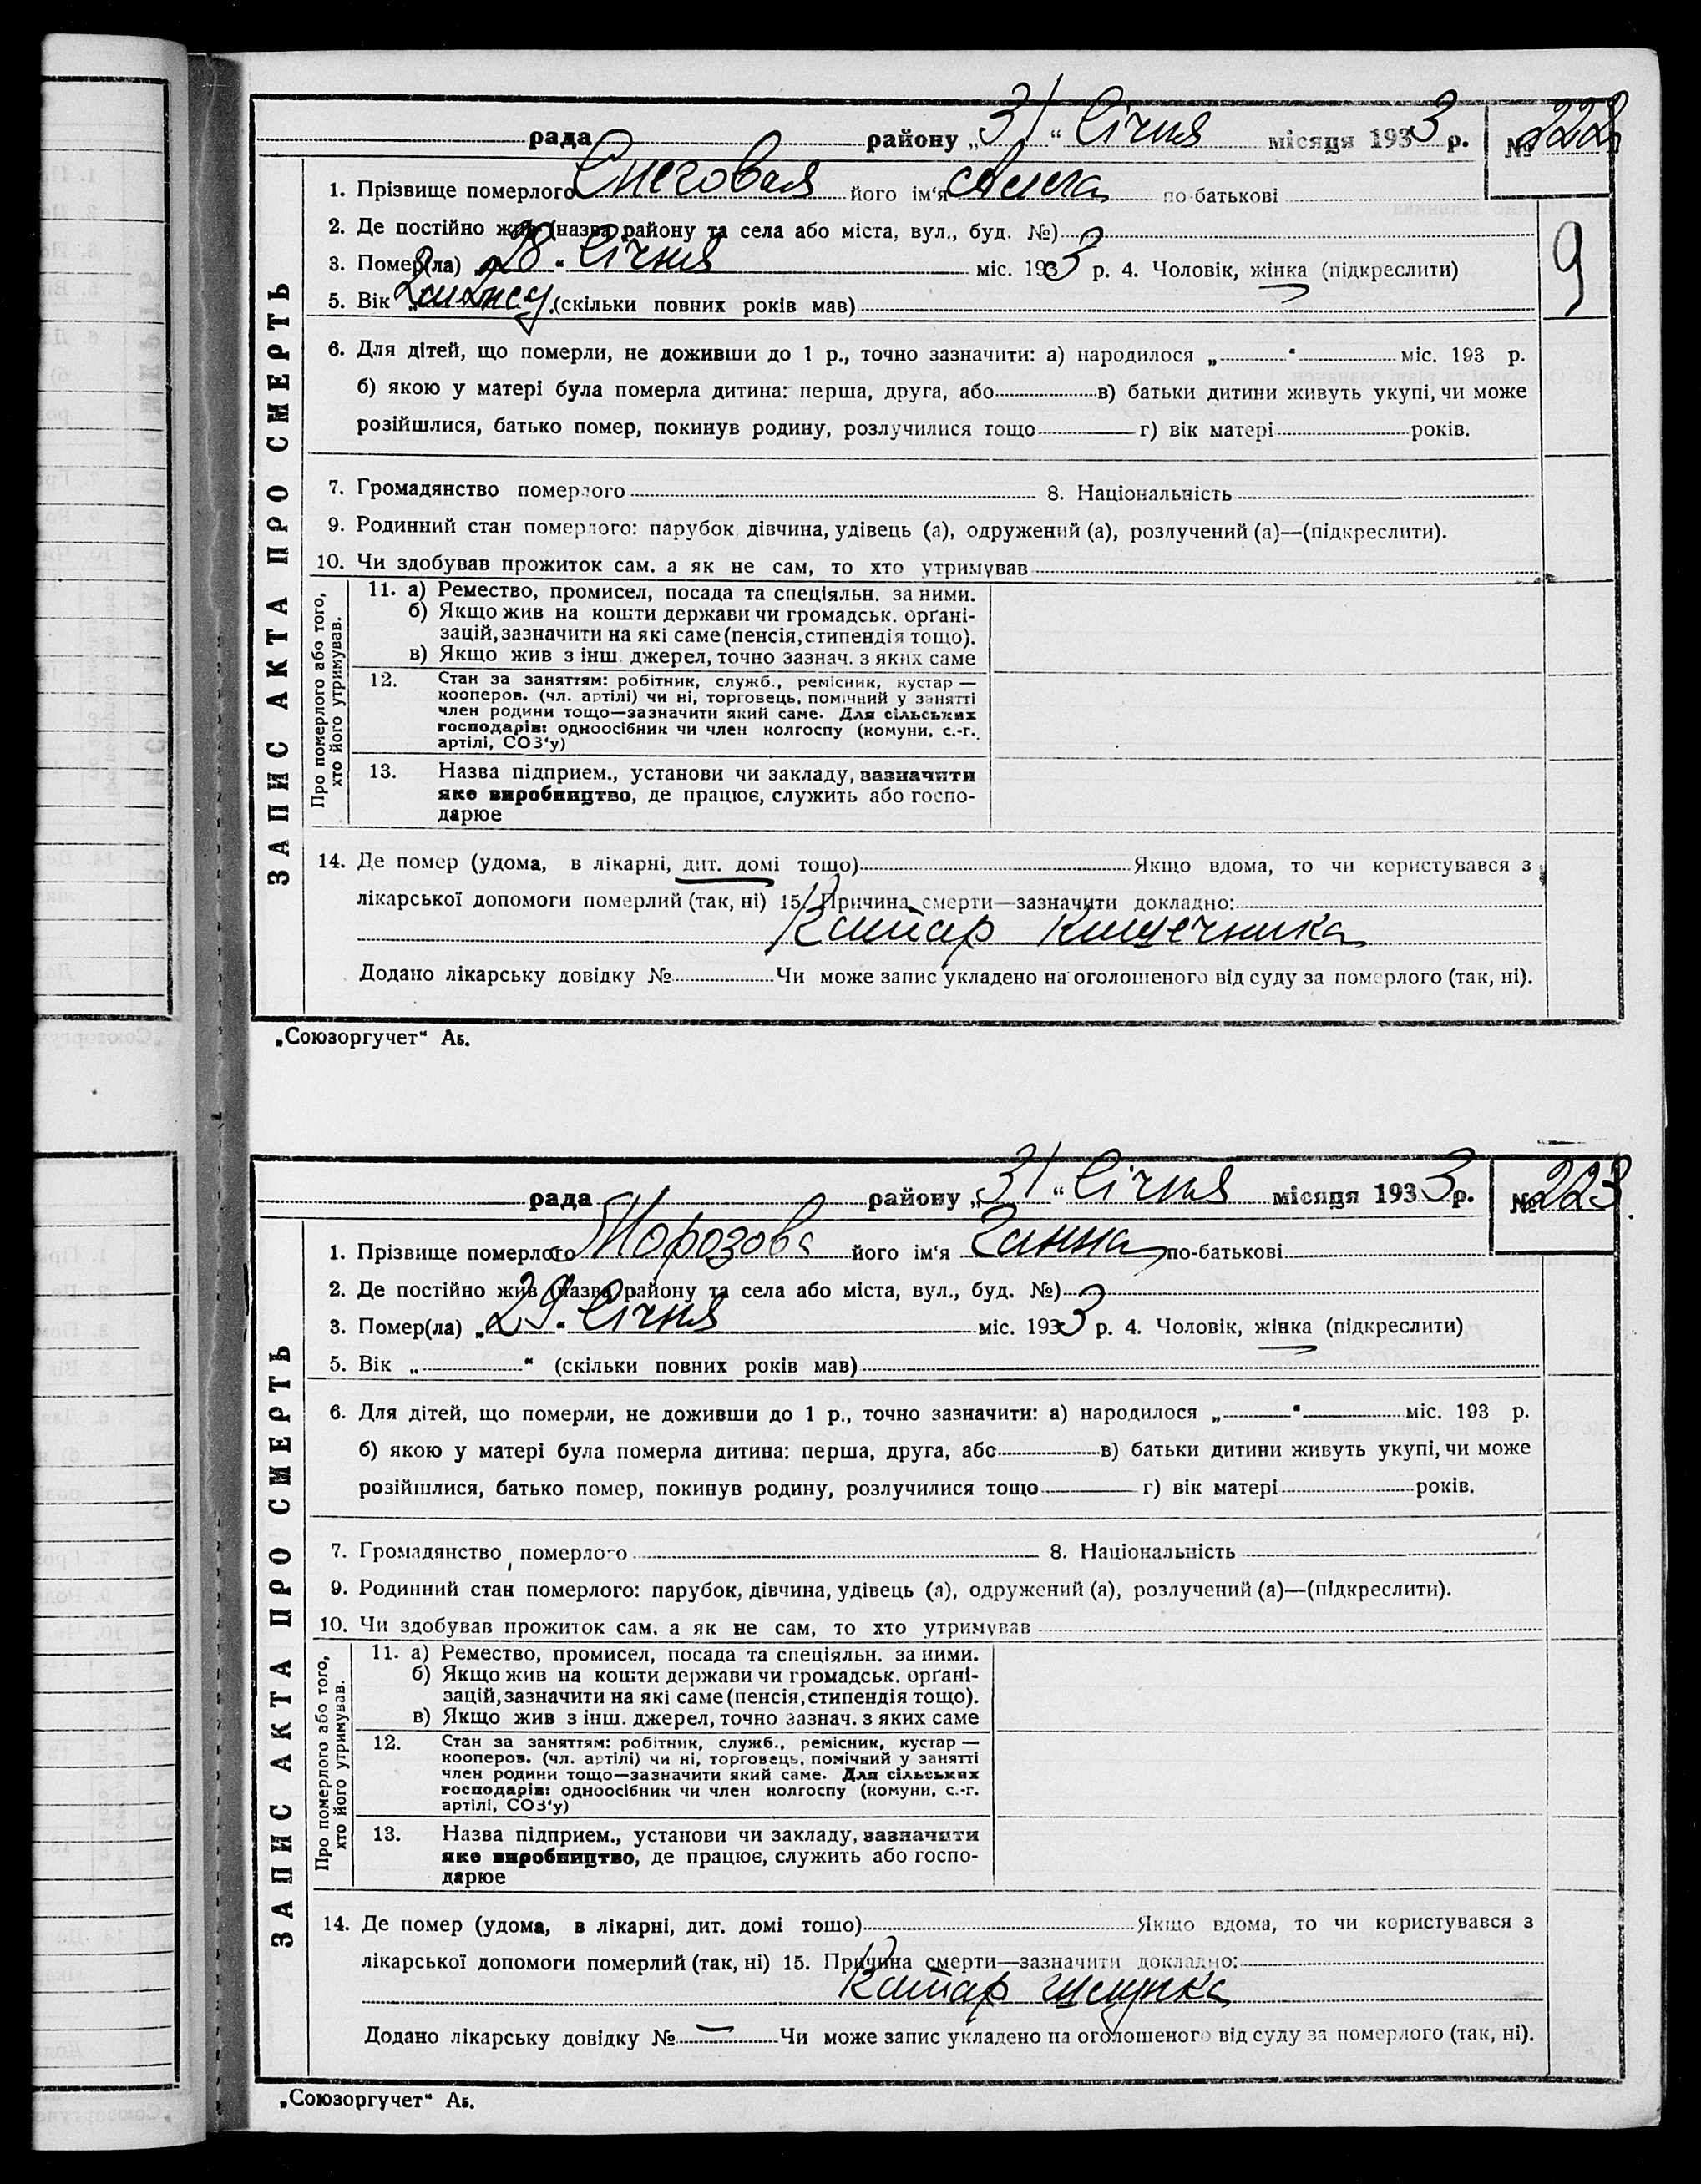 рада району „31“ Січня місяця 1933 р. № 222
1. Прізвище померлого Снеговая його ім‘я по-батькові
2. Де постійно жив (назва району та села або міста, вул., буд. №)
3. Помер(ла) „28“ Січня міс. 1933 р. 4. Чоловік, жінка (підкреслити)
9
5. Вік (скільки повних років мав)
6. Для дітей, що померли, не доживши до 1 р., точно зазначити: а) народилося „ “ міс. 193 р.
б) якою у матері була померла дитина: перша, друга, або в) батьки дитини живуть укупі, чи може
розійшлися, батько помер, покинув родину, розлучилися тощо г) вік матері років.
7. Громадянство померлого 8. Національність
9. Родинний стан померлого: парубок, дівчина, удівець (а), одружений (а), розлучений (а)—(підкреслити).
10. Чи здобував прожиток сам, а як не сам, то хто утримував
ЗАПИС АКТА ПРО СМЕРТЬ
Про померлого або того,
хто його утримував.
11. а) Ремество, промисел, посада та спеціяльн. за ними.
б) Якщо жив на кошти держави чи громадськ. орґані-
зацій, зазначити на які саме (пенсія, стипендія тощо).
в) Якщо жив з інш. джерел, точно зазнач. з яких саме
12. Стан за заняттям: робітник, служб., ремісник, кустар —
кооперов. (чл. артілі) чи ні, торговець, помічний у занятті
член родини тощо—зазначити який саме. Для сільських
господарів: одноосібник чи член колгоспу (комуни, с.-г.
артілі, СОЗ‘у)
13. Назва підприєм., установи чи закладу, зазначити
яке виробництво, де працює, служить або госпо-
дарює
14. Де помер (удома, в лікарні, дит. домі тощо) Якщо вдома, то чи користувався з
лікарської допомоги померлий (так, ні) 15. Причина смерти—зазначити докладно:
Катар Кишечника
Додано лікарську довідку № Чи може запис укладено на оголошеного від суду за померлого (так, ні).
„Союзоргучет“ Аб.
рада району „31“ Січня місяця 1933 р. № 223.
1. Прізвище померлого Морозова його ім‘я Ганна по-батькові
2. Де постійно жив (назва району та села або міста, вул., буд. №)
3. Помер(ла) „29“ Січня міс. 1933 р. 4. Чоловік, жінка (підкреслити)
5. Вік „ “ (скільки повних років мав)
6. Для дітей, що померли, не доживши до 1 р., точно зазначити: а) народилося „ “ міс. 193 р.
б) якою у матері була померла дитина: перша, друга, або в) батьки дитини живуть укупі, чи може
розійшлися, батько помер, покинув родину, розлучилися тощо г) вік матері років.
7. Громадянство померлого 8. Національність
9. Родинний стан померлого: парубок, дівчина, удівець (а), одружений (а), розлучений (а)—(підкреслити).
10. Чи здобував прожиток сам, а як не сам, то хто утримував
ЗАПИС АКТА ПРО СМЕРТЬ
Про померлого або того,
хто його утримував.
11. а) Ремество, промисел, посада та спеціяльн. за ними.
б) Якщо жив на кошти держави чи громадськ. орґані-
зацій, зазначити на які саме (пенсія, стипендія тощо).
в) Якщо жив з інш. джерел, точно зазнач. з яких саме
12. Стан за заняттям: робітник, служб., ремісник, кустар —
кооперов. (чл. артілі) чи ні, торговець, помічний у занятті
член родини тощо—зазначити який саме. Для сільських
господарів: одноосібник чи член колгоспу (комуни, с.-г.
артілі, СОЗ‘у)
13. Назва підприєм., установи чи закладу, зазначити
яке виробництво, де працює, служить або госпо-
дарює
14. Де помер (удома, в лікарні, дит. домі тощо) Якщо вдома, то чи користувався з
лікарської допомоги померлий (так, ні) 15. Причина смерти—зазначити докладно:
Катар шлунка
Додано лікарську довідку № — Чи може запис укладено на оголошеного від суду за померлого (так, ні).
„Союзоргучет“ Аб.